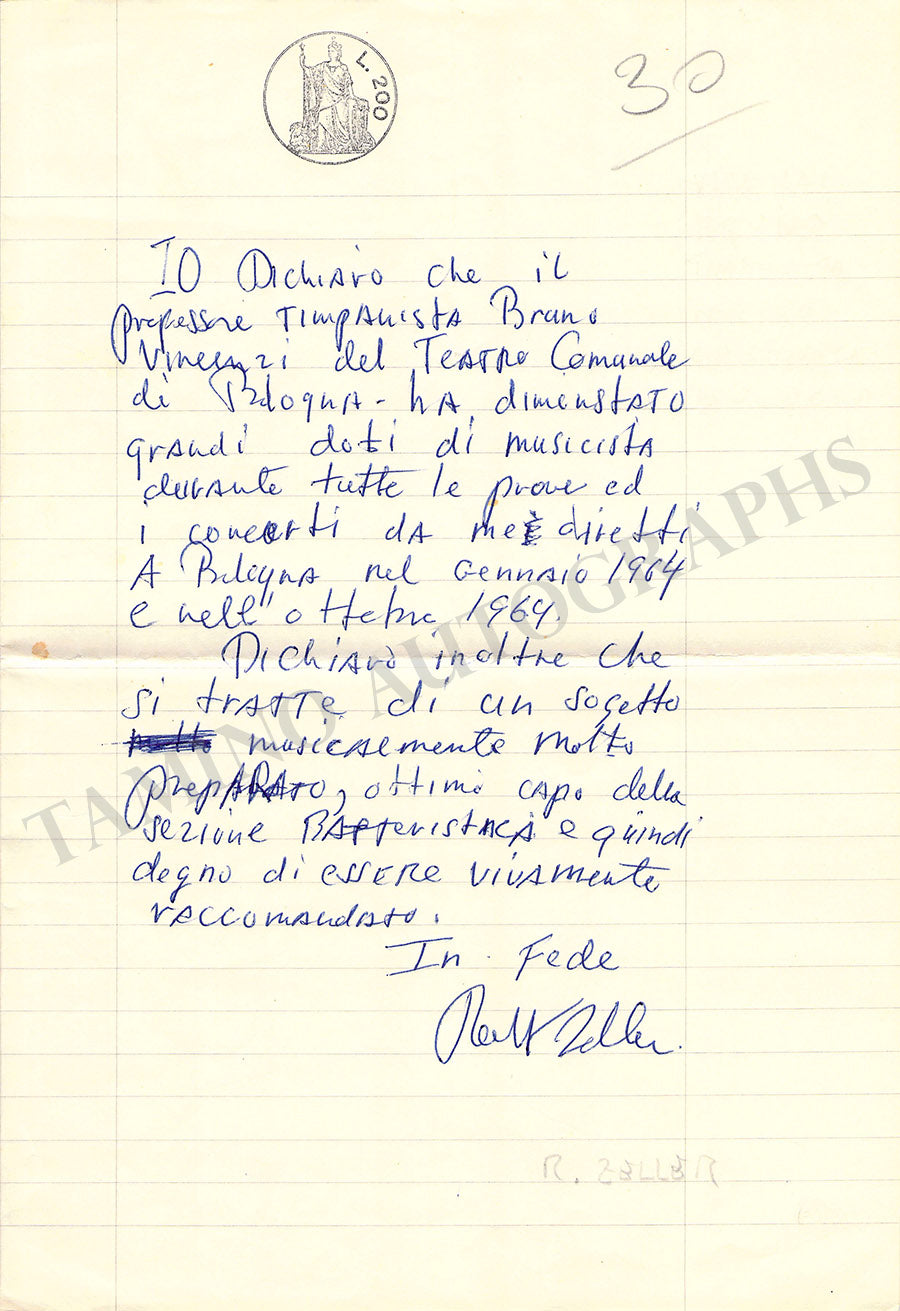 L. 200
30
IO Dichiaro che il
professore TimpAnista Bruno
Vincenzi del Teatro Comunale
di BologNA - hA dimenstATO
grandi doti di musicista
durante tutte le prove ed
i concerti dA me diretti
A BolognA nel Gennaio 1964
e nell'ottobre 1964.
Dichiaro inoltre che
si tratte di un sogetto
musicalmente molto
prepARATO, ottimo capo della
sezione BAtteristica e quindi
degno di essere vivamente
raccomandato.
In Fede
Zeller.
R. ZELLER
TAMINO AUTOGRAPHS